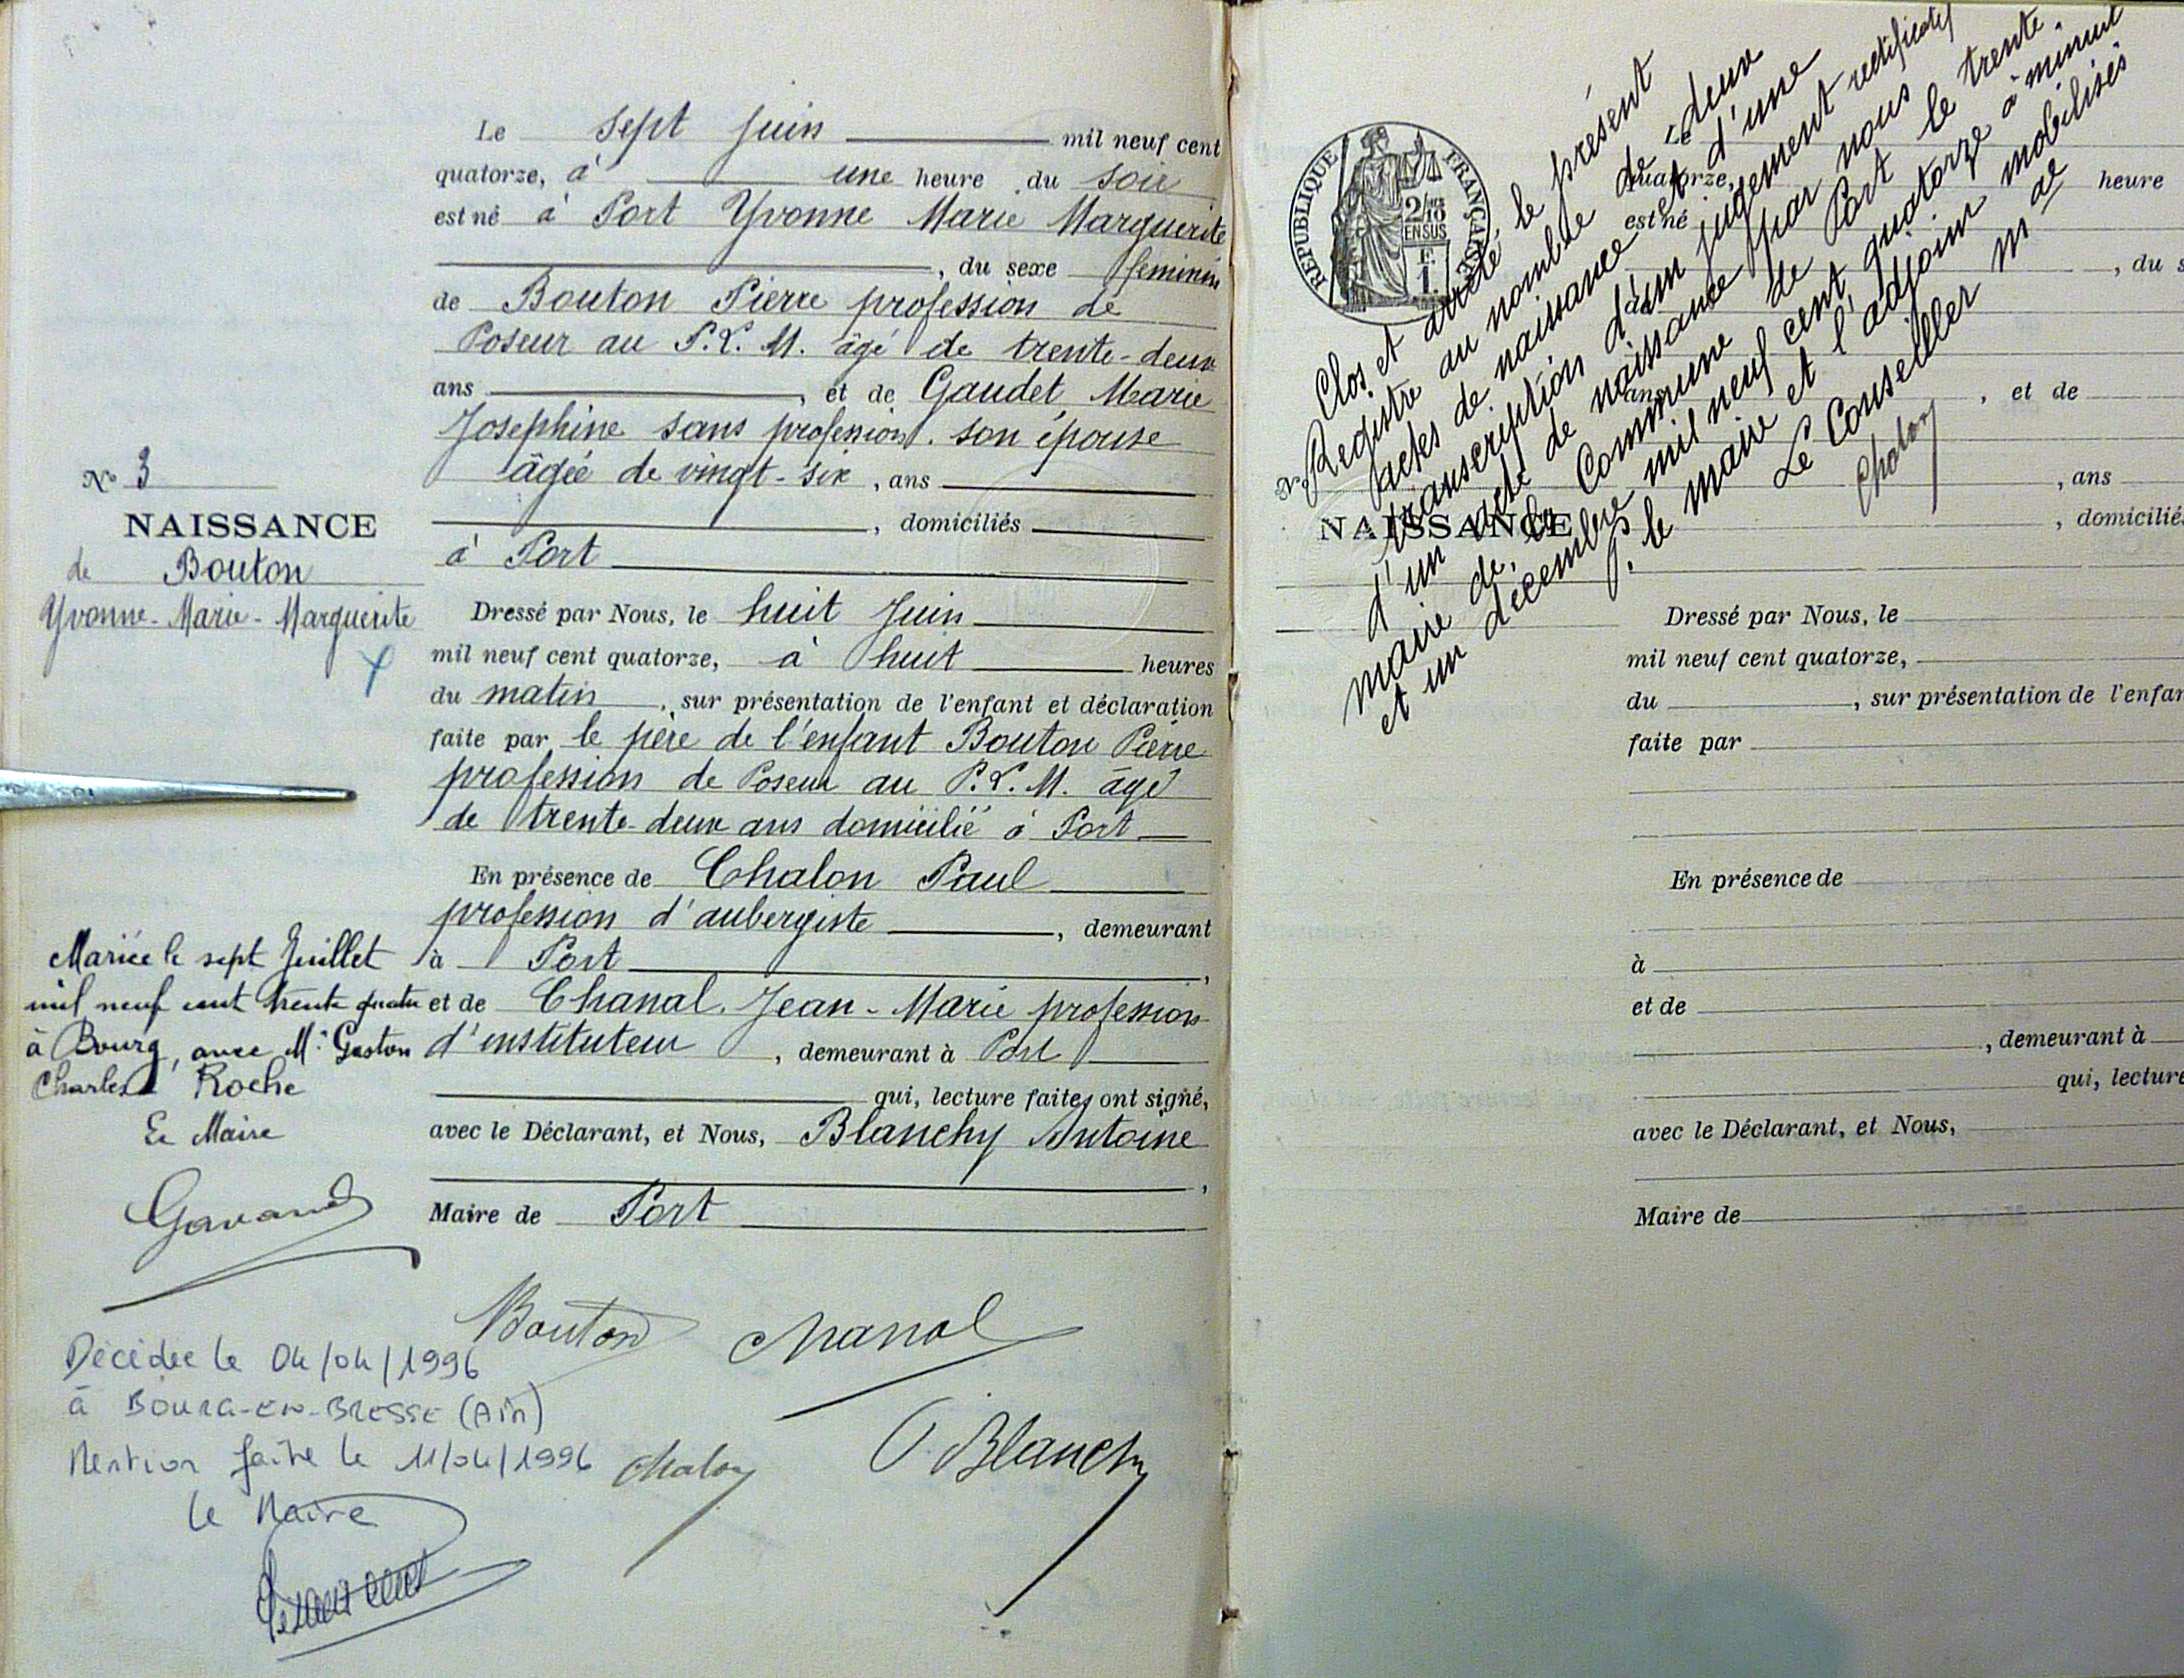 Le sept Juin mil neuf cent
quatorze, à une heure du soir
est né à Port Yvonne Marie Marguerite
, du sexe feminin
de Bouton Pierre profession de
Poseur au P.L.M. âgé de trente-deux
ans , et de Gaudet Marie
Josephine sans profession. son épouse
âgée de vingt-six , ans
, domiciliés
à Port
Dressé par Nous, le huit Juin
mil neuf cent quatorze, à huit heures
du matin , sur présentation de l'enfant et déclaration
faite par le père de l'enfant Bouton Pierre
profession de Poseur au P.L.M. âgé
de trente-deux ans domicilié à Port
En présence de Chalon Paul
profession d'aubergiste , demeurant
à Port ,
et de Chanal Jean-Marie profession
d'instituteur , demeurant à Port
qui, lecture faite, ont signé,
avec le Déclarant, et Nous, Blanchy Antoine
,
Maire de Port
Bouton Chanal
Chalon Blanchy
No 3
NAISSANCE
de Bouton
Yvonne-Marie-Marguerite
Mariée le sept Juillet
mil neuf cent trente quatre
à Bourg, avec Mr Gaston
Charles Roche
Le Maire
Décédée le 04/04/1996
à BOURG-EN-BRESSE (Ain)
Mention faite le 11/04/1996
le Maire
RÉPUBLIQUE FRANÇAISE
2/10
EN SUS
F.
1.
Clos et arrêté le présent
Registre au nombre de deux
actes de naissance et d'une
transcription d'un jugement rectificatif
d'un acte de naissance par nous
maire de la Commune de Port le trente
et un décembre mil neuf cent quatorze à minuit
P. le maire et l'adjoint mobilisés
Le Conseiller mal
Chalon
Le
quatorze, heure
est né
, du s
de
ans , et de
No , ans
NAISSANCE , domiciliés
Dressé par Nous, le
mil neuf cent quatorze,
du , sur présentation de l'enfan
faite par
En présence de
à
et de
, demeurant à
qui, lecture
avec le Déclarant, et Nous,
Maire de